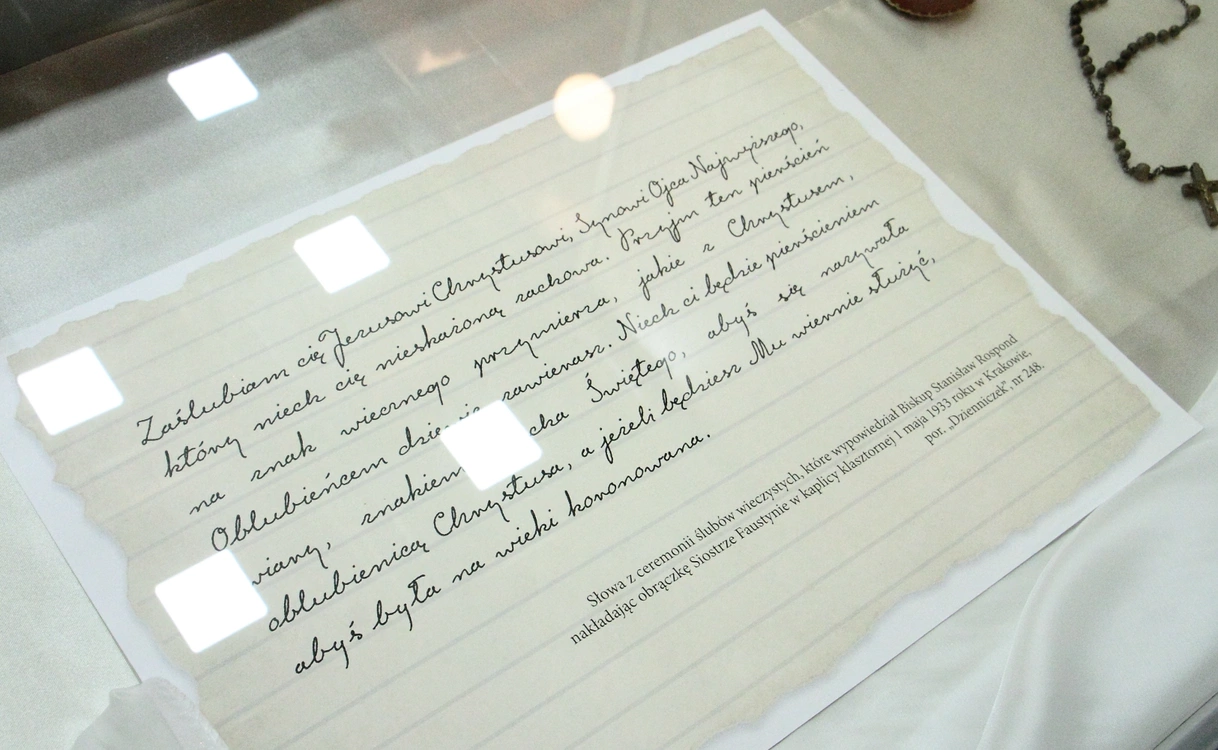 Zaślubiam cię Jezusowi Chrystusowi, Synowi Ojca Najwyższego,
który niech cię nieskażoną zachowa. Przyjm ten pierścień
na znak wiecznego przymierza, jakie z Chrystusem,
Oblubieńcem zawierasz. Niech ci będzie pierścieniem
wiary, znakiem Świętego, abyś się nazywała
oblubienicą Chrystusa, a jeżeli będziesz Mu wiernie służyć,
abyś była na wieki koronowana.
Słowa z ceremonii ślubów wieczystych, które wypowiedział Biskup Stanisław Rospond
nakładając obrączkę Siostrze Faustynie w kaplicy klasztornej 1 maja 1933 roku w Krakowie,
por. „Dzienniczek", nr 248.